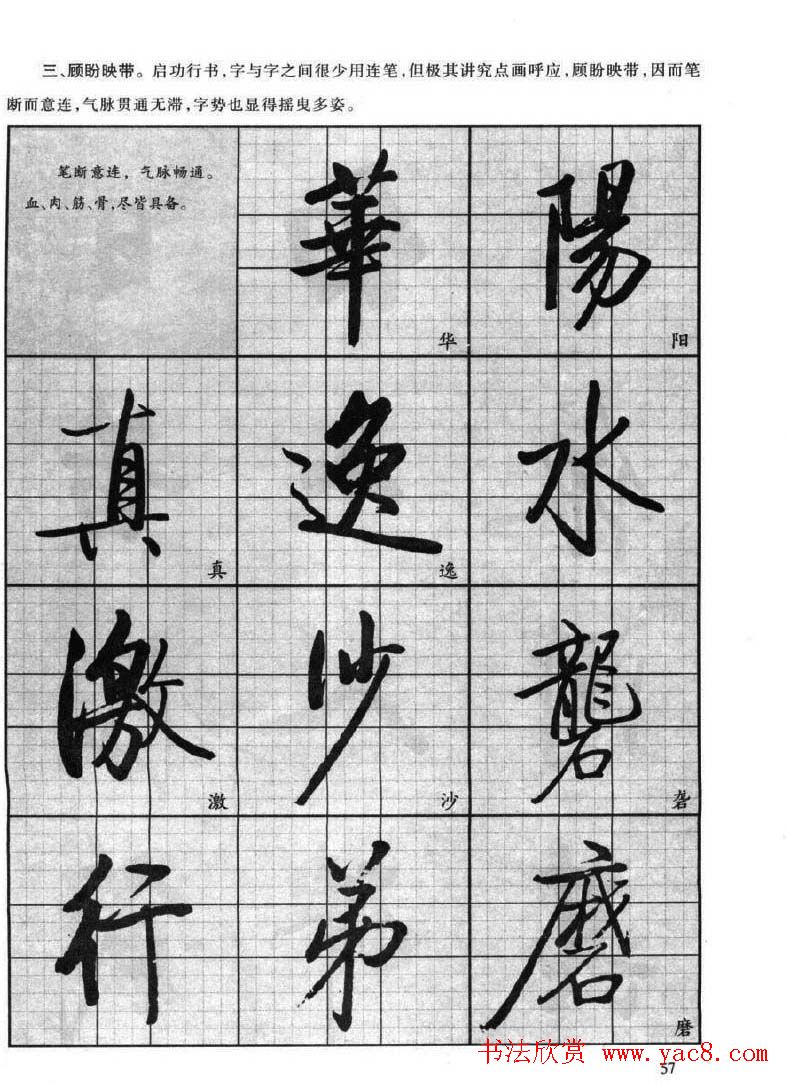 三、顾盼映带。启功行书,字与字之间很少用连笔,但极其讲究点画呼应,顾盼映带,因而笔
断而意连,气脉贯通无滞,字势也显得摇曳多姿。
笔断意连，气脉畅通。
血、肉、筋、骨,尽皆具备。
華 陽
华 阳
真 逸 水
真 逸
激 沙 礱
激 沙 砻
行 弟 磨
磨
书法欣赏 www.yac8.com
57